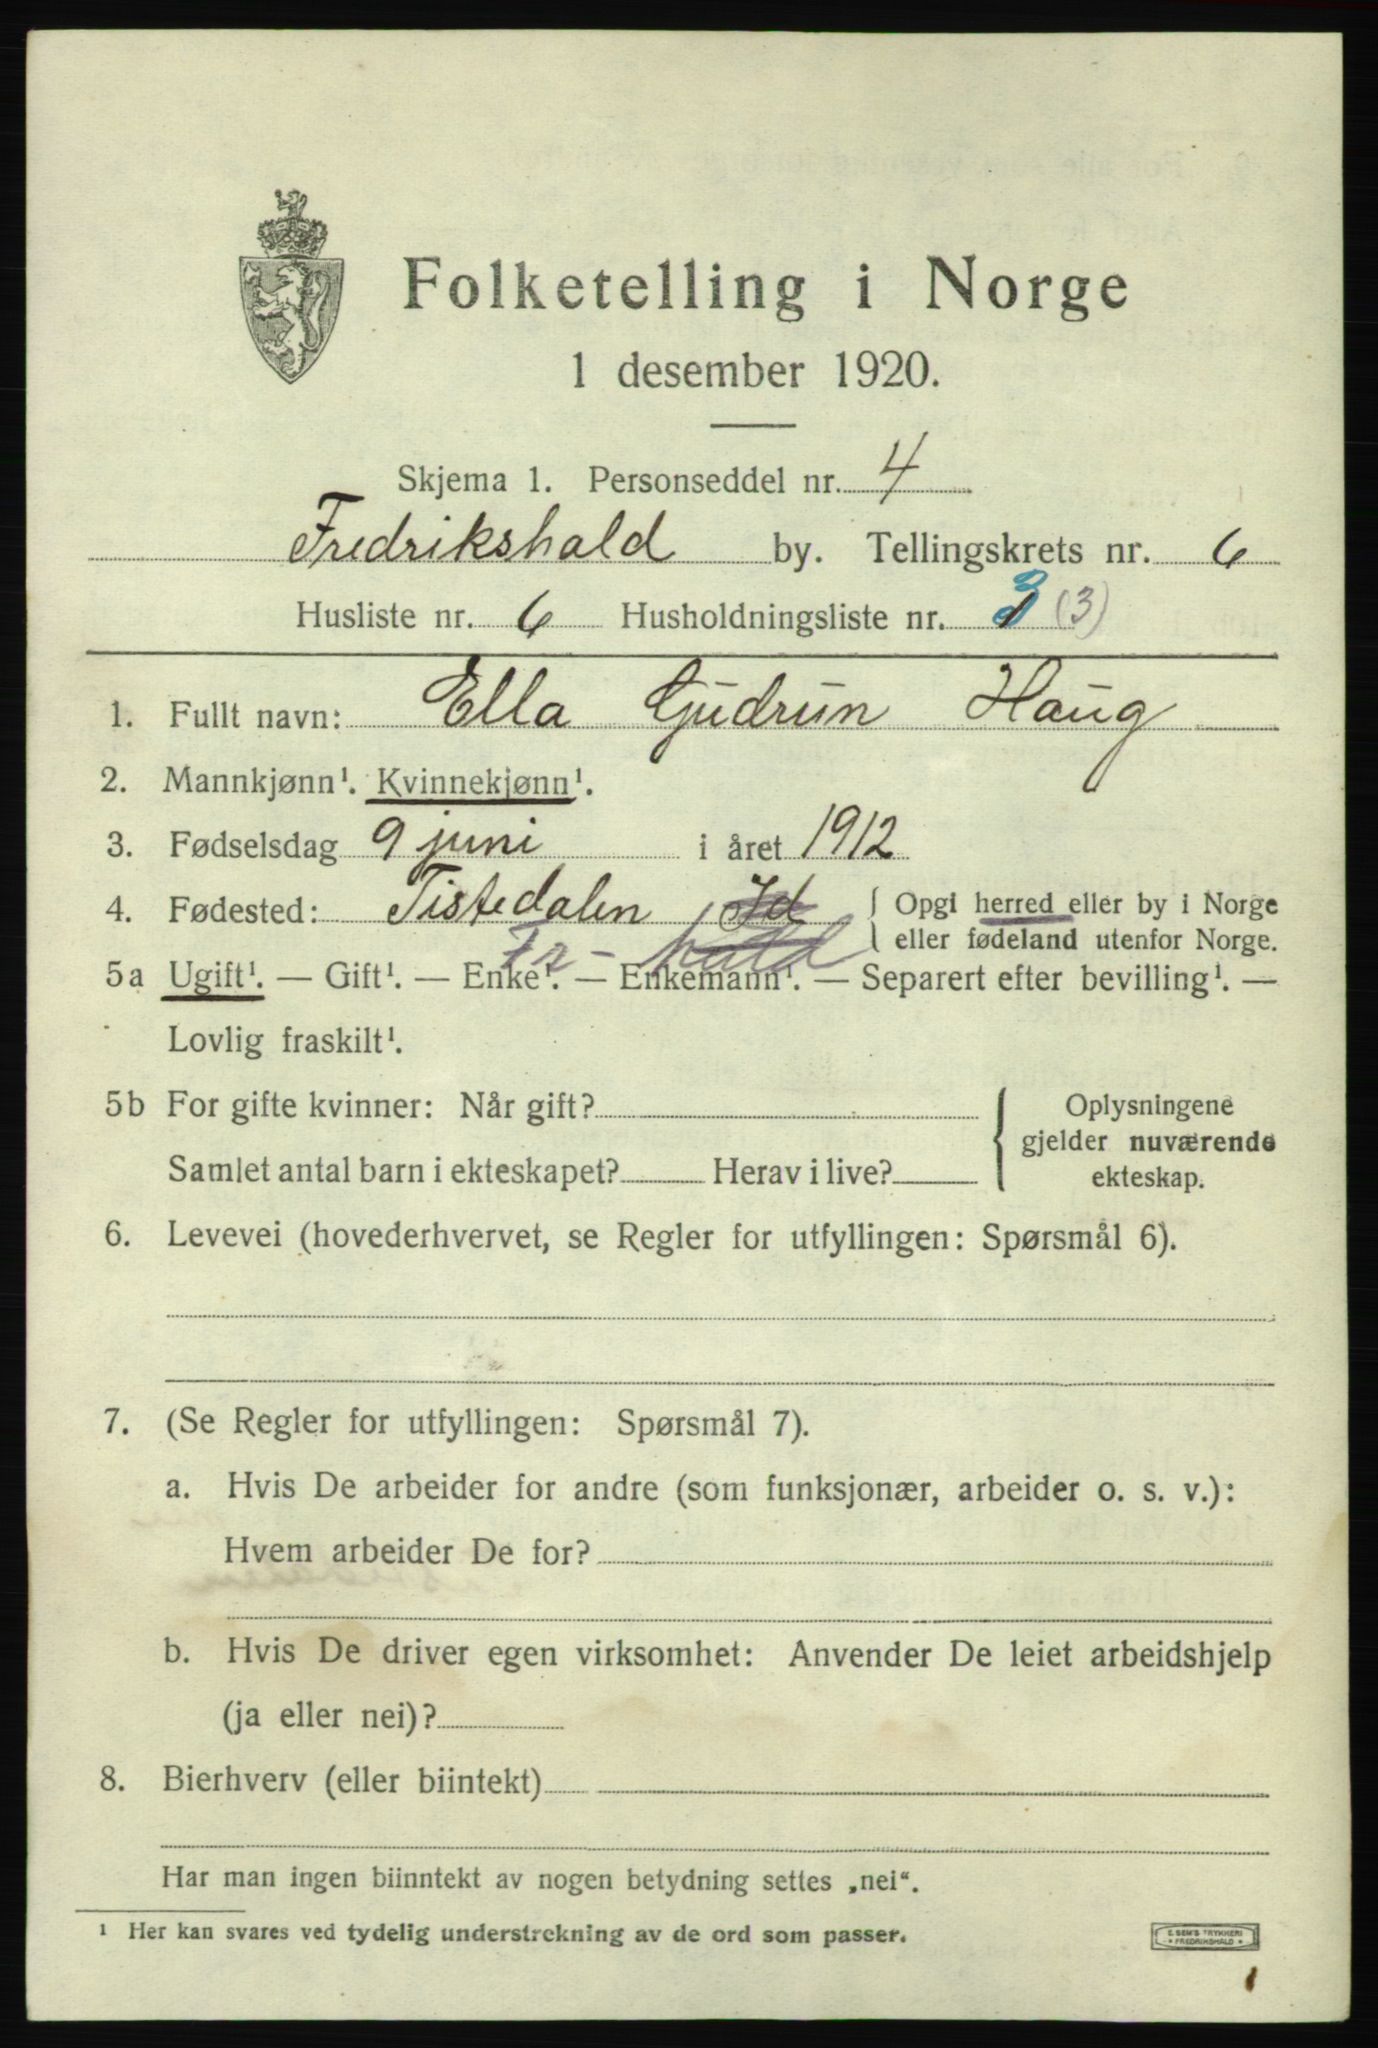 Folketelling i Norge
1 desember 1920.
Skjema 1. Personseddel nr. 4
Fredrikshald by. Tellingskrets nr. 6
Husliste nr. 6 Husholdningsliste nr. 3 (3)
1. Fullt navn: Ella Gudrun Haug
2. Mannkjønn¹. Kvinnekjønn¹.
3. Fødselsdag 9 juni i året 1912
4. Fødested: Tistedalen Id { Opgi herred eller by i Norge
eller fødeland utenfor Norge.
Fr-hald
5a Ugift¹. — Gift¹. — Enke¹. — Enkemann¹. — Separert efter bevilling¹. —
Lovlig fraskilt¹.
5b For gifte kvinner: Når gift? { Oplysningene
gjelder nuværende
Samlet antal barn i ekteskapet? Herav i live? ekteskap.
6. Levevei (hovederhvervet, se Regler for utfyllingen: Spørsmål 6).
7. (Se Regler for utfyllingen: Spørsmål 7).
a. Hvis De arbeider for andre (som funksjonær, arbeider o. s. v.):
Hvem arbeider De for?
b. Hvis De driver egen virksomhet: Anvender De leiet arbeidshjelp
(ja eller nei)?
8. Bierhverv (eller biintekt)
Har man ingen biinntekt av nogen betydning settes „nei“.
¹ Her kan svares ved tydelig understrekning av de ord som passer.
E. SEM'S TRYKKERI
• FREDRIKSHALD •